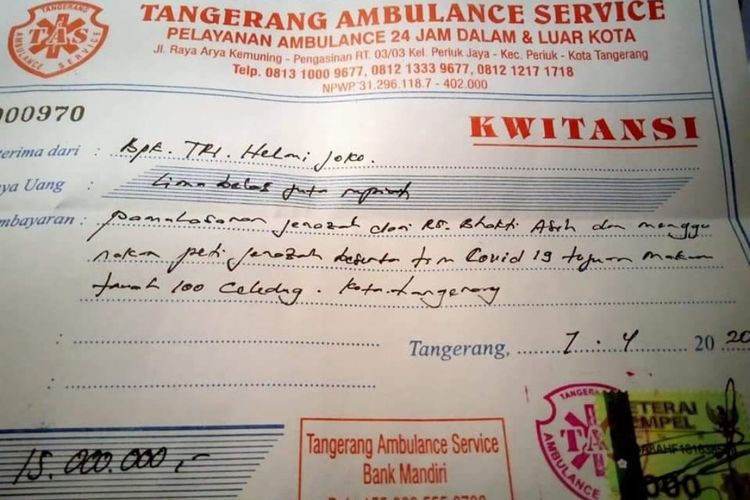 TANGERANG AMBULANCE SERVICE
PELAYANAN AMBULANCE 24 JAM DALAM & LUAR KOTA
Jl. Raya Arya Kemuning - Pengasinan RT. 03/03 Kel. Periuk Jaya - Kec. Periuk - Kota Tangerang
Telp. 0813 1000 9677, 0812 1333 9677, 0812 1217 1718
NPWP 31.296.118.7 - 402.000
TANGERANG
TAS
AMBULANCE SERVICE
000970
KWITANSI
terima dari : Bpk. TRI. Helmi Joko.
nya Uang : Lima belas juta rupiah
mbayaran : pamulasaran jenazah dari RS. Bhakti Asih dan menggu
nakan peti jenazah beserta tim Covid 19 tujuan makam
tanah 100 Celedug. Kota. tangerang
Tangerang, 7 - 4 2020
15.000.000,-
Tangerang Ambulance Service
Bank Mandiri
TANGERANG
TAS
ETERAI
EMPEL
000